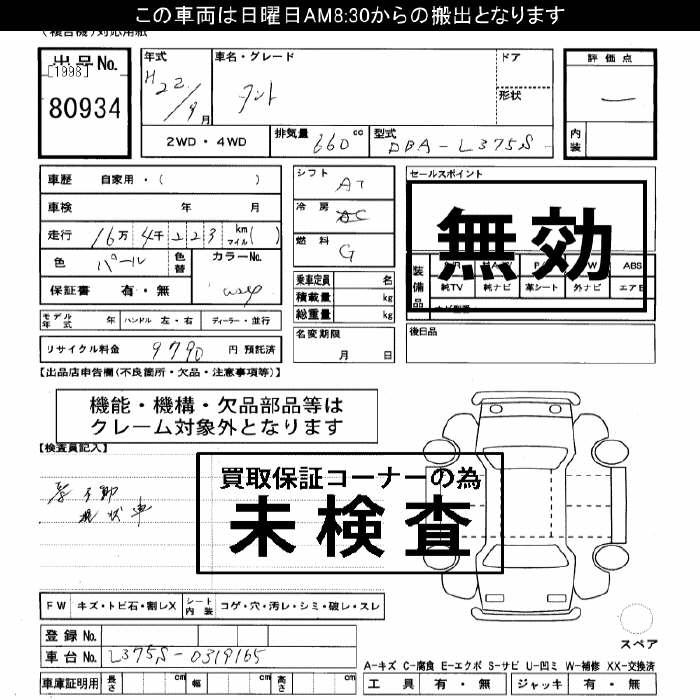 この車両は日曜日AM8:30からの搬出となります
出品No.
[1998]
80934
年式
H22/9月
車名・グレード
タント
ドア
形状
評価点
ー
内装
2WD・4WD
排気量 660cc
型式 DBA-L375S
車歴 自家用・( )
車検 年 月
走行 16万4千223 km マイル( )
色 パール 色替
カラーNo. W24
保証書 有・無
モデル年式 年 ハンドル 左・右 ディーラー・並行
リサイクル料金 9790 円 預託済
シフト AT
冷房 AC
燃料 G
乗車定員 名
積載量 kg
総重量 kg
名変期限
月 日
セールスポイント
無効
装備品
ABS
純TV 純ナビ 革シート 外ナビ エアB
後日品
【出品店申告欄(不良箇所・欠品・注意事項等)】
機能・機構・欠品部品等は
クレーム対象外となります
【検査員記入】
不動
現状車
買取保証コーナーの為
未検査
FW キズ・トビ石・割レX シート内装 コゲ・穴・汚レ・シミ・破レ・スレ
登録No.
車台No. L375S-0319165
車庫証明用 長さ cm 幅 cm 高さ cm
スペア
A-キズ C-腐食 E-エクボ S-サビ U-凹ミ W-補修 XX-交換済
工具 有・無 ジャッキ 有・無